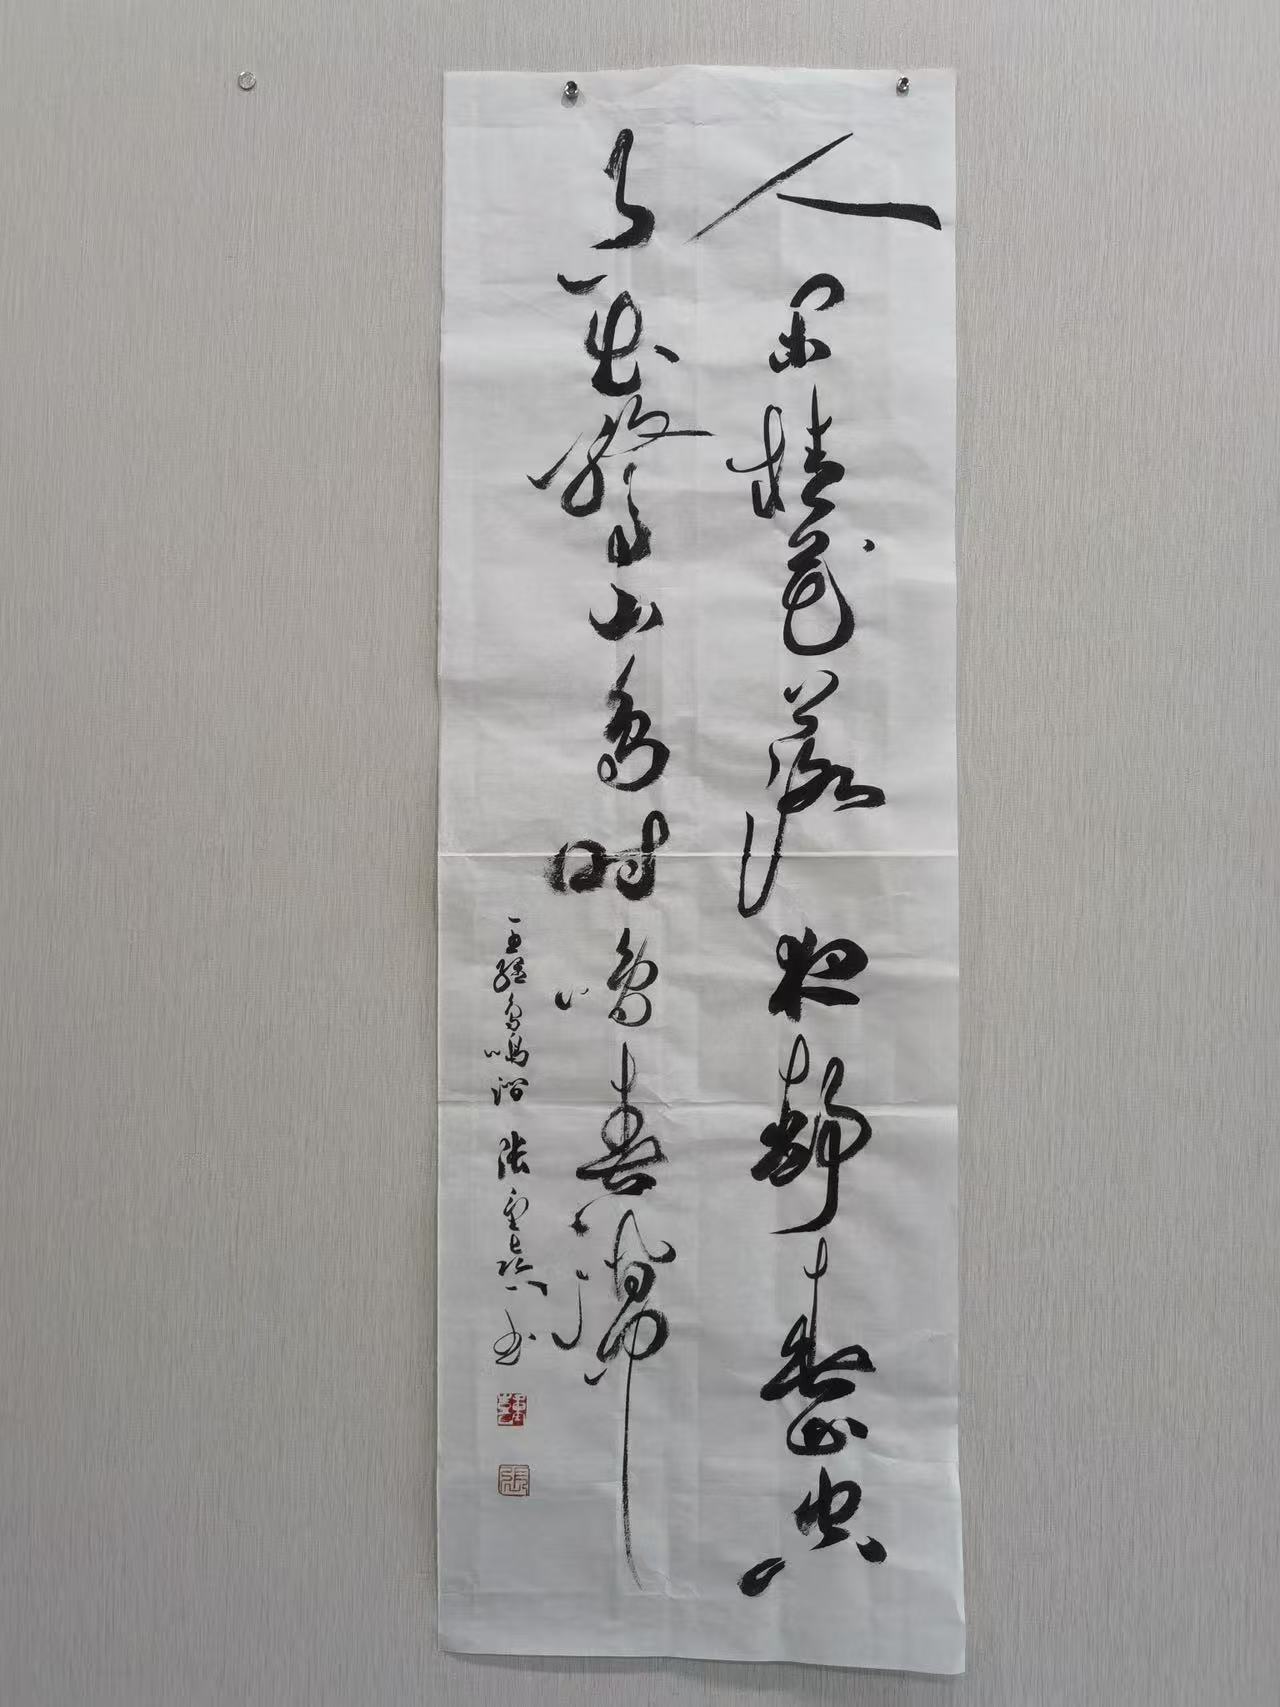 人闲桂花落夜静春山空
月出惊山鸟时鸣春涧中
王维鸟鸣涧 张重庆书
張